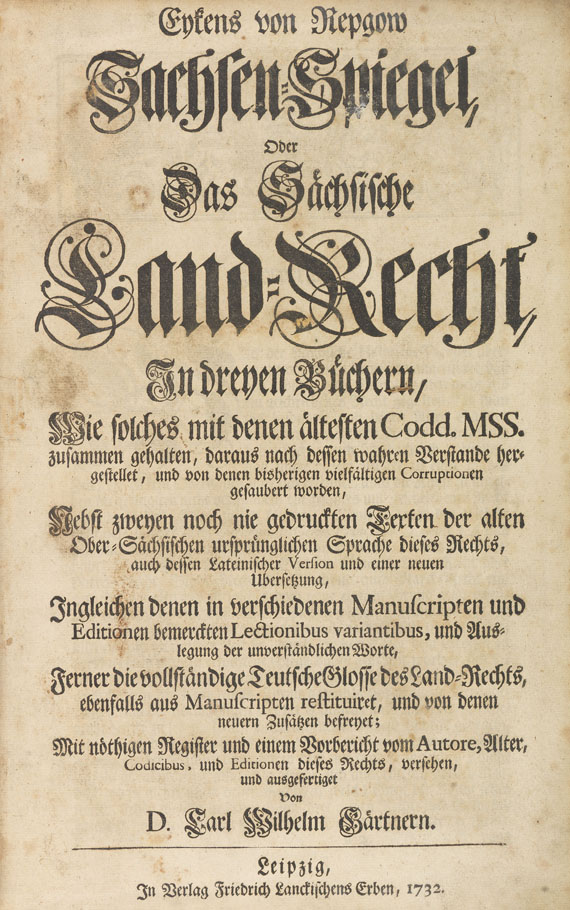 Eykens von Repgow
Sachsen-Spiegel,
Oder
Das Sächsische
Land-Recht,
In dreyen Büchern,
Wie solches mit denen ältesten Codd. MSS.
zusammen gehalten, daraus nach dessen wahren Verstande her-
gestellet, und von denen bisherigen vielfältigen Corruptionen
gesaubert worden,
Nebst zweyen noch nie gedruckten Texten der alten
Ober-Sächsischen ursprünglichen Sprache dieses Rechts,
auch dessen Lateinischer Version und einer neuen
Ubersetzung,
Ingleichen denen in verschiedenen Manuscripten und
Editionen bemerckten Lectionibus variantibus, und Aus-
legung der unverständlichen Worte,
Ferner die vollständige Teutsche Glosse des Land-Rechts,
ebenfalls aus Manuscripten restituiret, und von denen
neuern Zusätzen befreyet;
Mit nöthigen Register und einem Vorbericht vom Autore, Alter,
Codicibus, und Editionen dieses Rechts, versehen,
und ausgefertiget
Von
D. Carl Wilhelm Gärtnern.
Leipzig,
In Verlag Friedrich Lanckischens Erben, 1732.